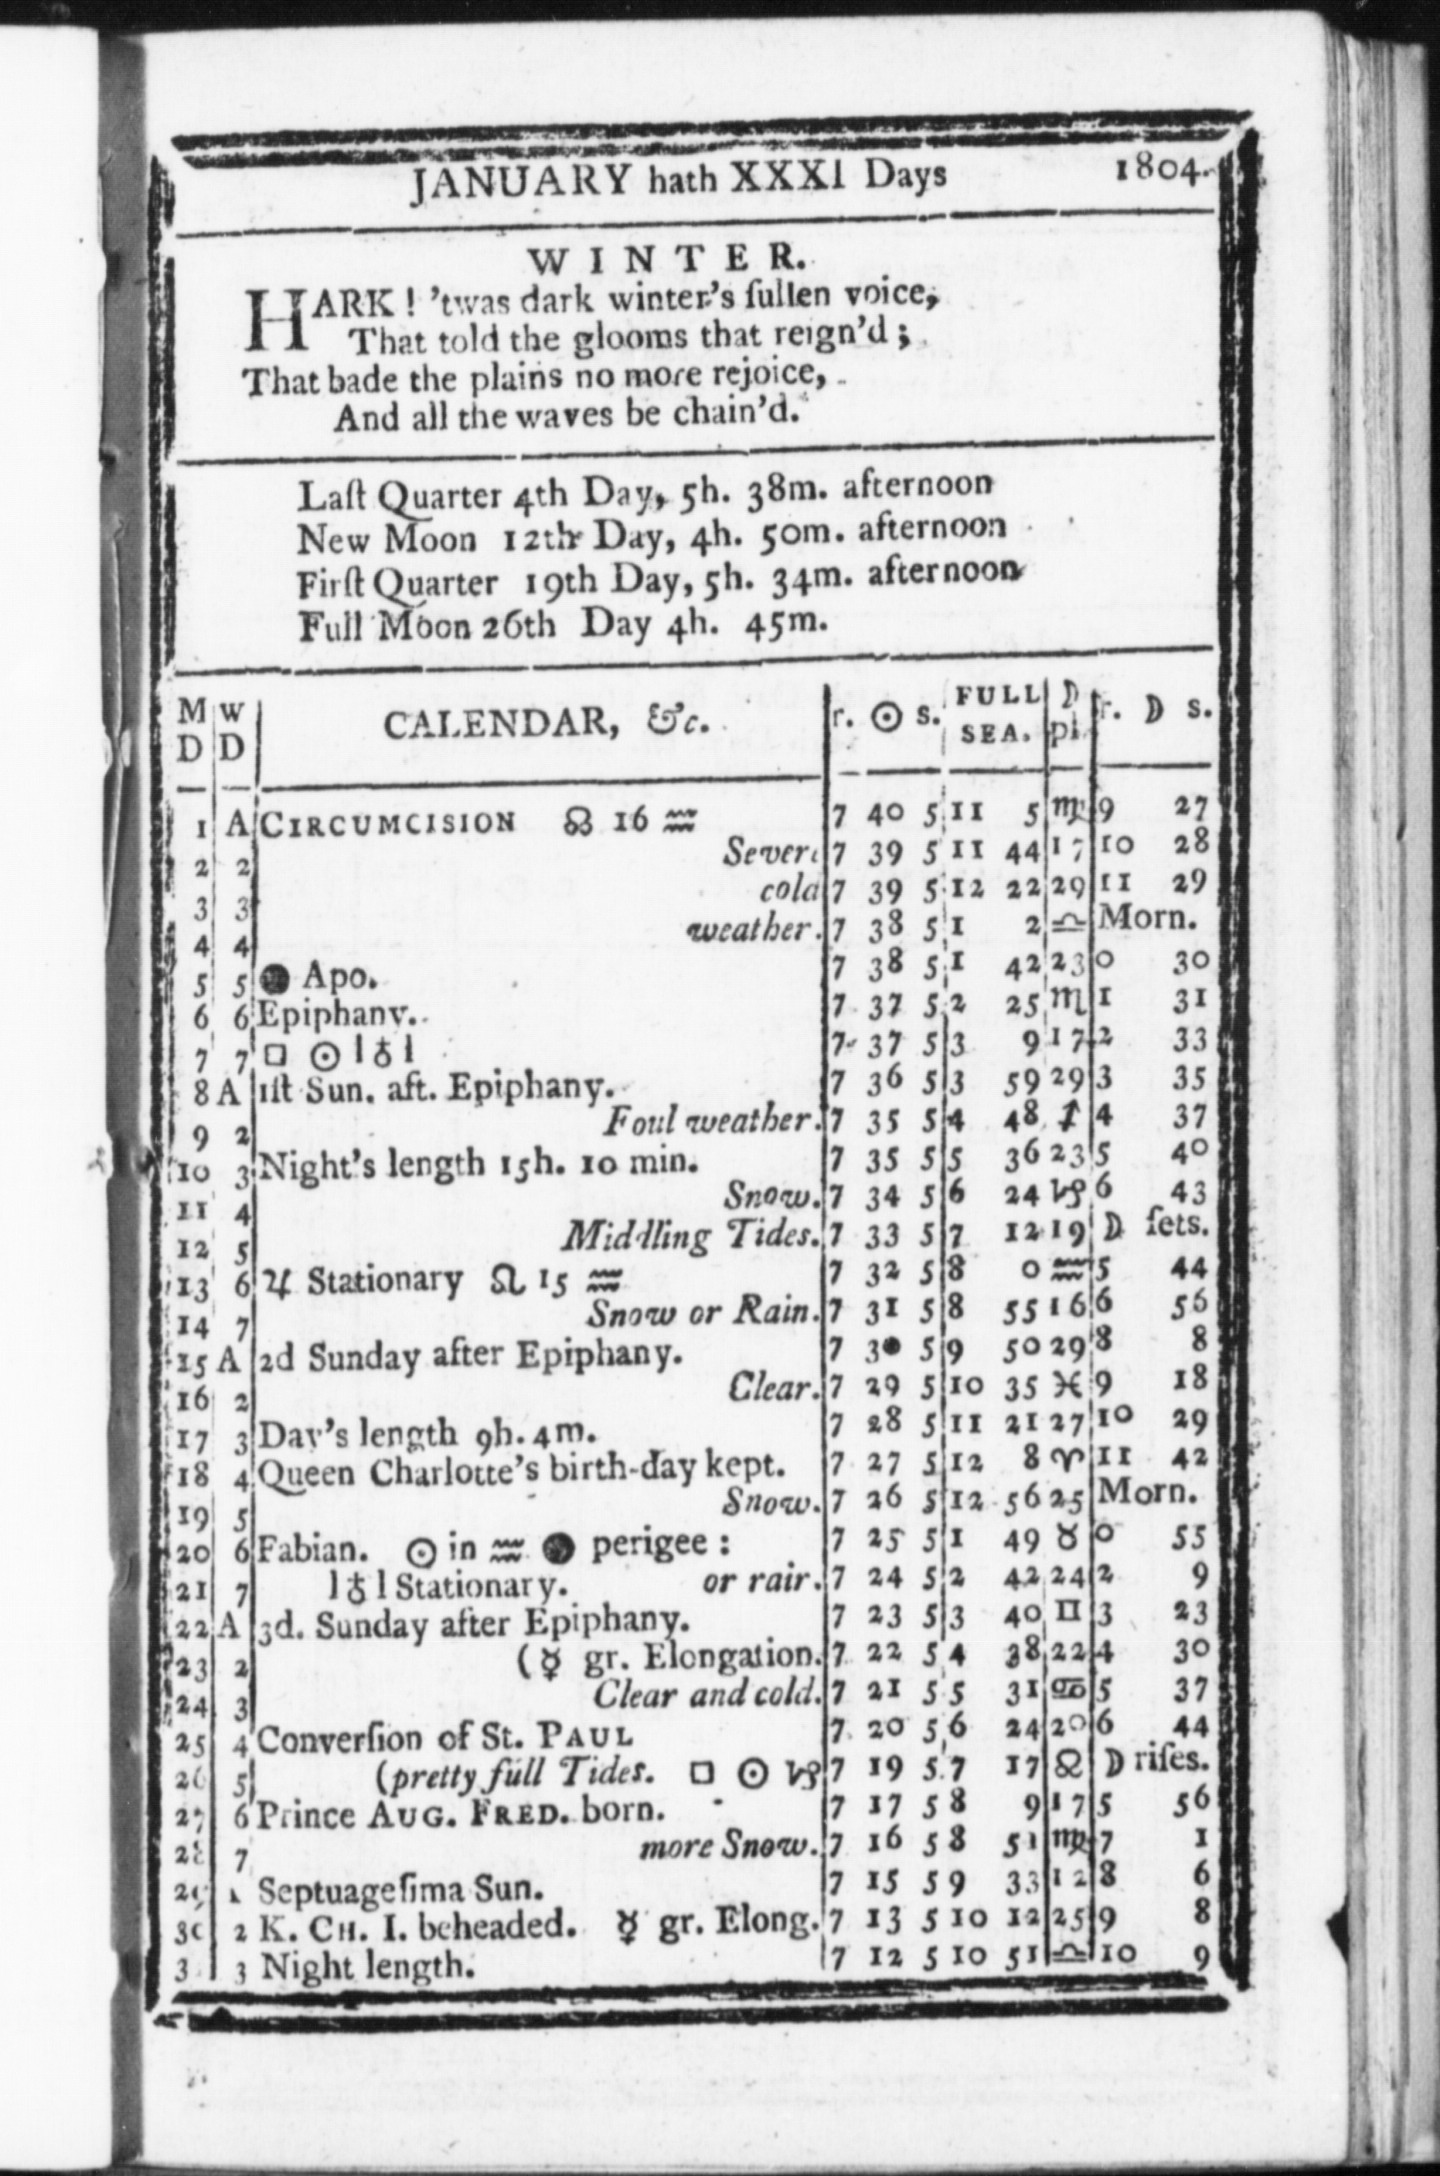 JANUARY hath XXXI Days 1804.
WINTER.
HARK! 'twas dark winter's ſullen voice,
That told the glooms that reign'd;
That bade the plains no more rejoice,
And all the waves be chain'd.
Laſt Quarter 4th Day, 5h. 38m. afternoon
New Moon 12th Day, 4h. 50m. afternoon
Firſt Quarter 19th Day, 5h. 34m. afternoon
Full Moon 26th Day 4h. 45m.
M D W D CALENDAR, &c. r. ☉ s. FULL SEA. ☽ pl. r. ☽ s.
1 A CIRCUMCISION ☊ 16 ♒ 7 40 5 11 5 ♍ 9 27
2 2 Severe 7 39 5 11 44 17 10 28
3 3 cold 7 39 5 12 22 29 11 29
4 4 weather. 7 38 5 1 2 ♎ Morn.
5 5 ● Apo. 7 38 5 1 42 23 0 30
6 6 Epiphany. 7 37 5 2 25 ♏ 1 31
7 7 □ ☉ l♁l 7 37 5 3 9 17 2 33
8 A 1ſt Sun. aft. Epiphany. 7 36 5 3 59 29 3 35
9 2 Foul weather. 7 35 5 4 48 ♐ 4 37
10 3 Night's length 15h. 10 min. 7 35 5 5 36 23 5 40
11 4 Snow. 7 34 5 6 24 ♑ 6 43
12 5 Middling Tides. 7 33 5 7 12 19 ☽ ſets.
13 6 ♃ Stationary ☊ 15 ♒ 7 32 5 8 0 ♒ 5 44
14 7 Snow or Rain. 7 31 5 8 55 16 6 56
15 A 2d Sunday after Epiphany. 7 30 5 9 50 29 8 8
16 2 Clear. 7 29 5 10 35 ♓ 9 18
17 3 Day's length 9h. 4m. 7 28 5 11 21 27 10 29
18 4 Queen Charlotte's birth-day kept. 7 27 5 12 8 ♈ 11 42
19 5 Snow. 7 26 5 12 56 25 Morn.
20 6 Fabian. ☉ in ♒ ● perigee: 7 25 5 1 49 ♉ 0 55
21 7 l♁l Stationary. or rair. 7 24 5 2 42 24 2 9
22 A 3d. Sunday after Epiphany. 7 23 5 3 40 ♊ 3 23
23 2 (☿ gr. Elongation. 7 22 5 4 38 22 4 30
24 3 Clear and cold. 7 21 5 5 31 ♋ 5 37
25 4 Converſion of St. PAUL 7 20 5 6 24 20 6 44
26 5 (pretty full Tides. □ ☉ ♑ 7 19 5 7 17 ♌ ☽ riſes.
27 6 Prince AUG. FRED. born. 7 17 5 8 9 17 5 56
28 7 more Snow. 7 16 5 8 51 ♍ 7 1
29 Septuageſima Sun. 7 15 5 9 33 12 8 6
30 2 K. CH. I. beheaded. ☿ gr. Elong. 7 13 5 10 12 25 9 8
3 3 Night length. 7 12 5 10 51 ♎ 10 9